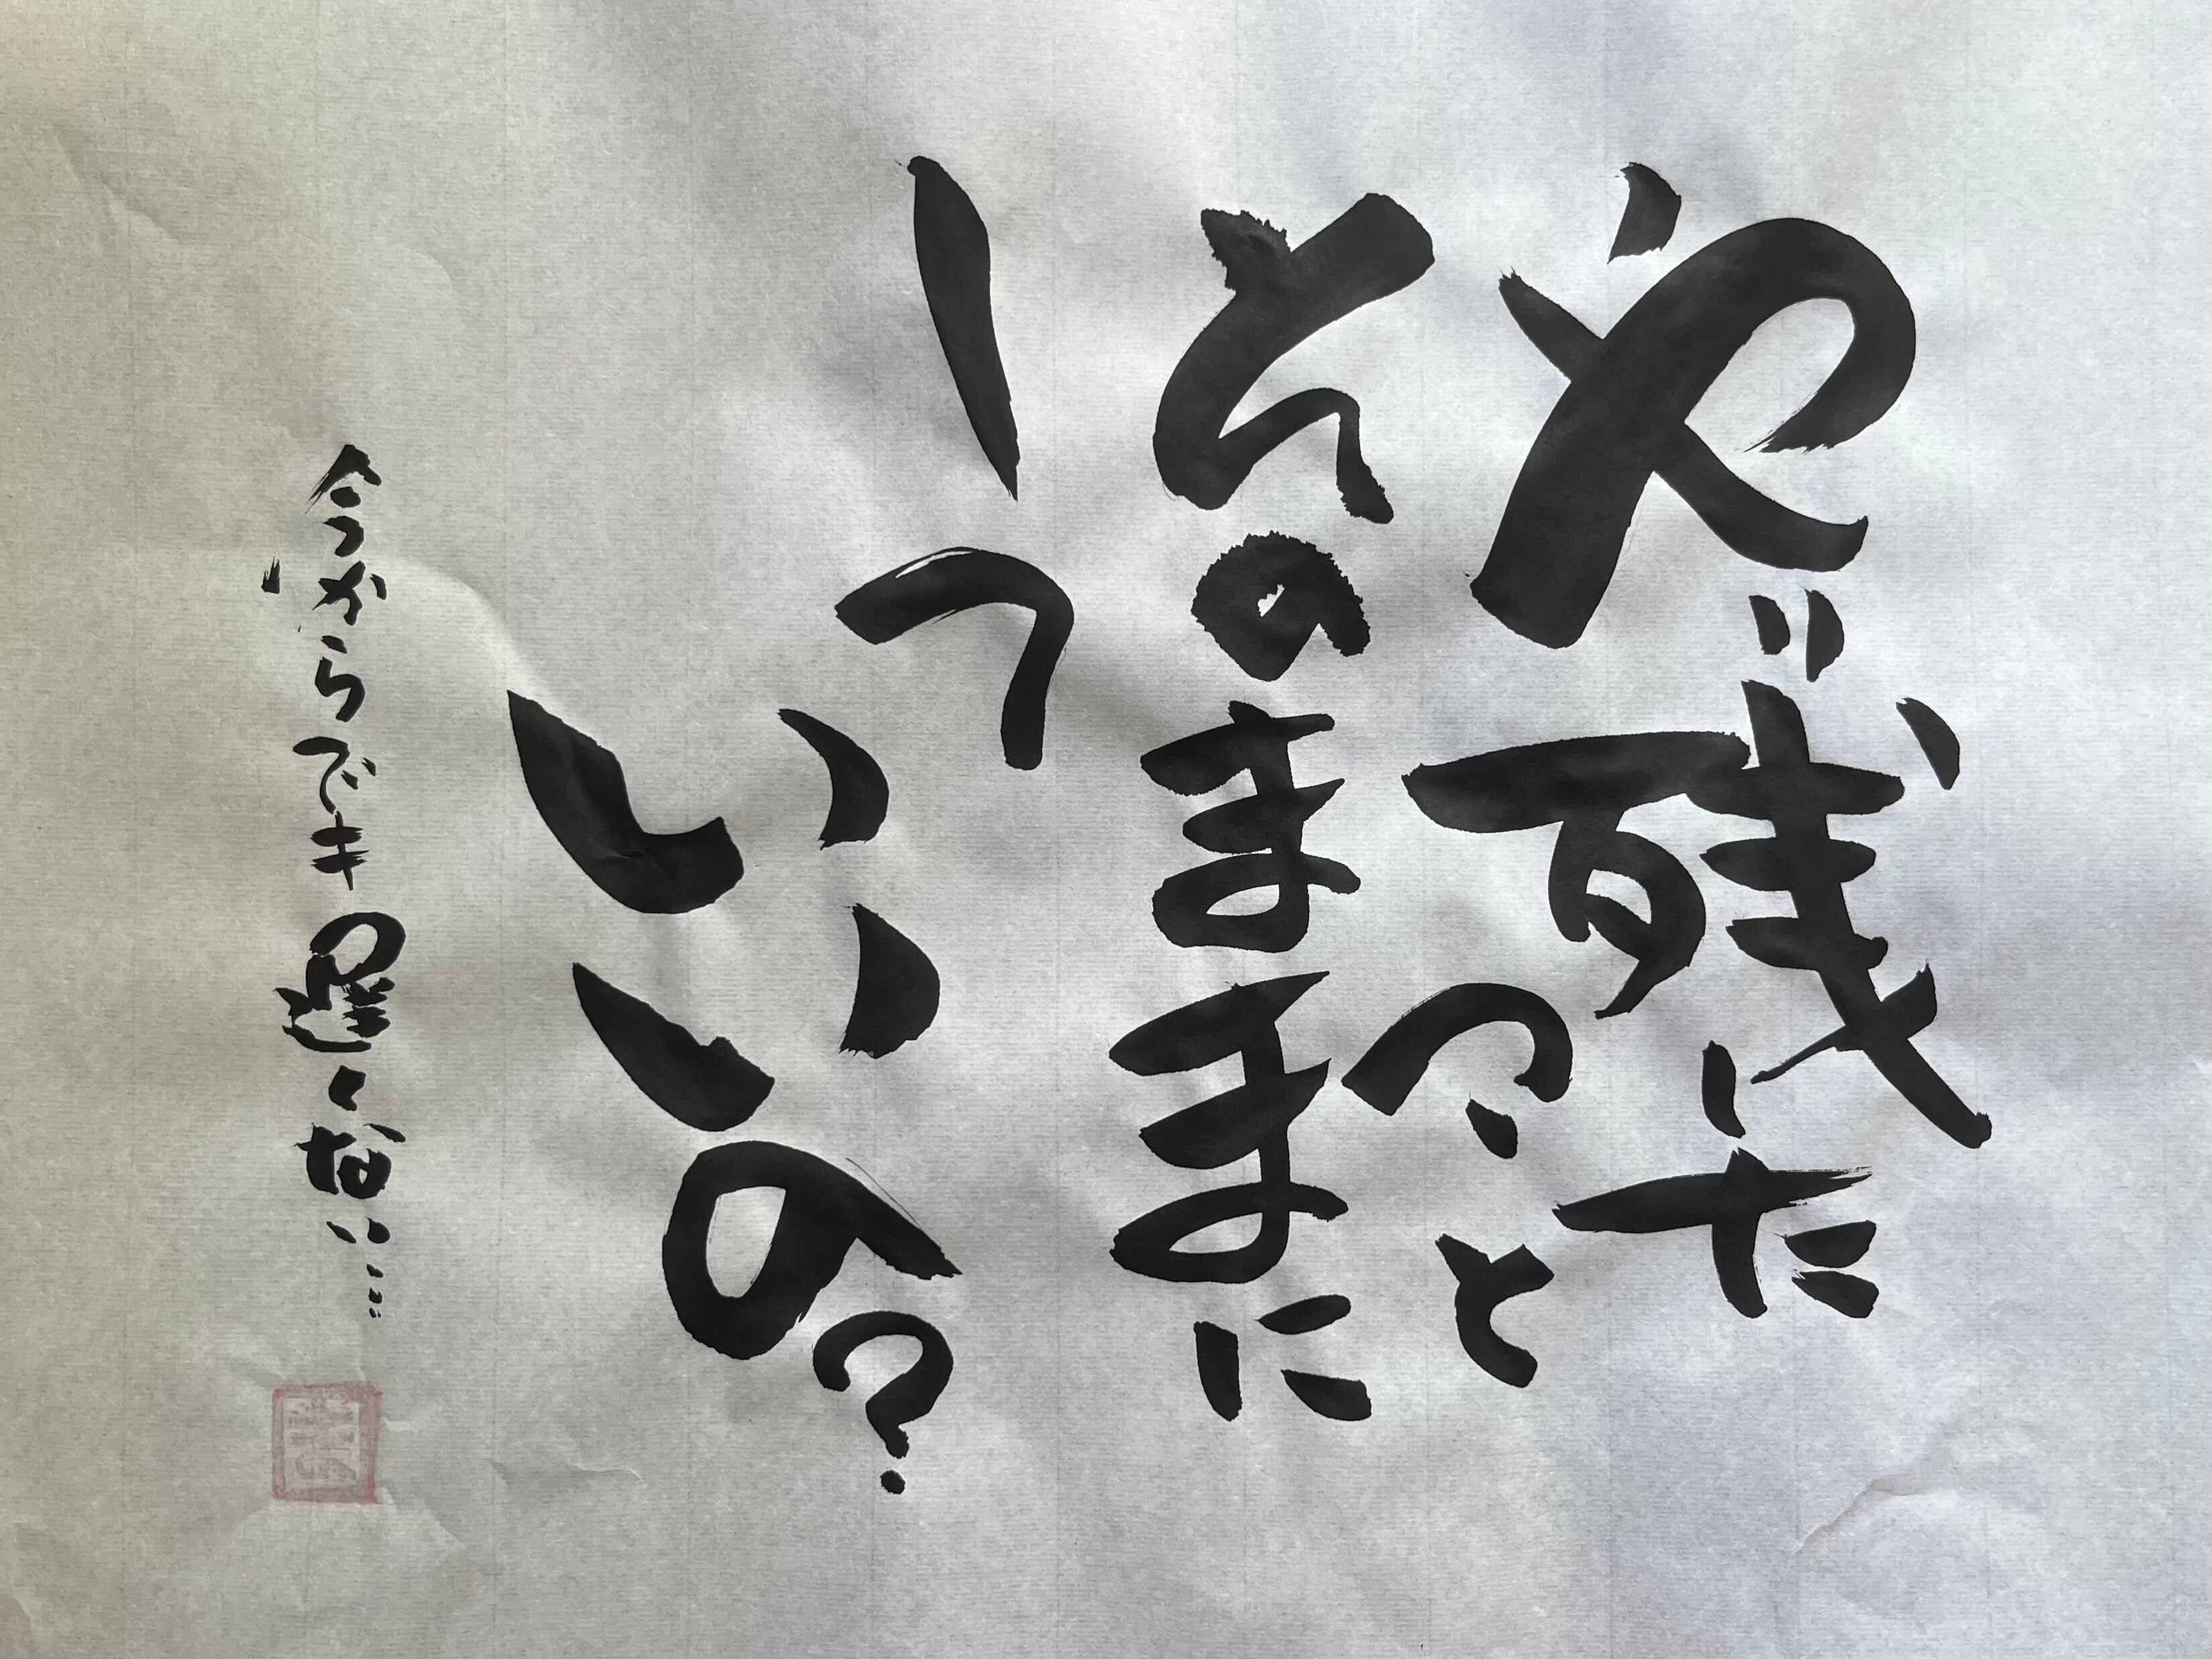 やり残した
こと
そのままに
して
いいの?
今からでも遅くない……